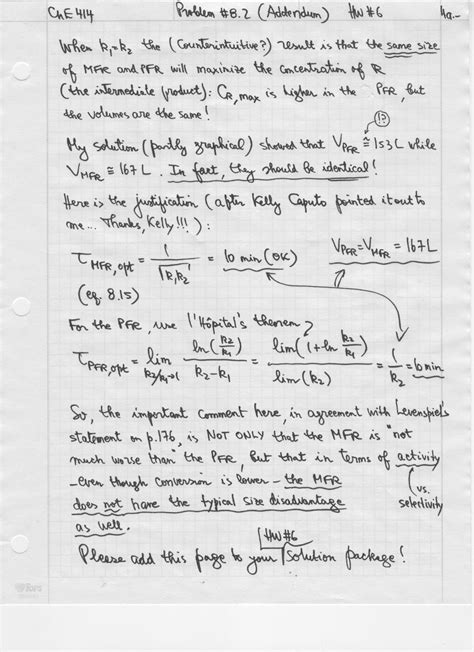 ChE 414 Problem #8.2 (Addendum) HW #6 4a.-
When k₁=k₂ the (counterintuitive?) result is that the same size
of MFR and PFR will maximize the concentration of R
(the intermediate product): C_R,max is higher in the PFR, but
the volumes are the same!
(!?)
My solution (partly graphical) showed that V_PFR ≅ 153 L while
V_MFR ≅ 167 L. In fact, they should be identical!
Here is the justification (after Kelly Caputo pointed it out to
me... Thanks, Kelly!!!):
τ_MFR,opt = 1/√(k₁k₂) = 10 min (OK) V_PFR = V_MFR = 167 L
(eq. 8.15)
For the PFR, use l'Hôpital's theorem
τ_PFR,opt = lim_{k₂/k₁→1} ln(k₂/k₁)/(k₂-k₁) = lim(1+ln k₂/k₁)/lim(k₂) = 1/k₂ = 10 min
So, the important comment here, in agreement with Levenspiel's
statement on p.176, is NOT ONLY that the MFR is "not
much worse than" the PFR, but that in terms of activity
-even though conversion is lower- the MFR
(vs. selectivity)
does not have the typical size disadvantage
as well.
HW#6
Please add this page to your solution package!